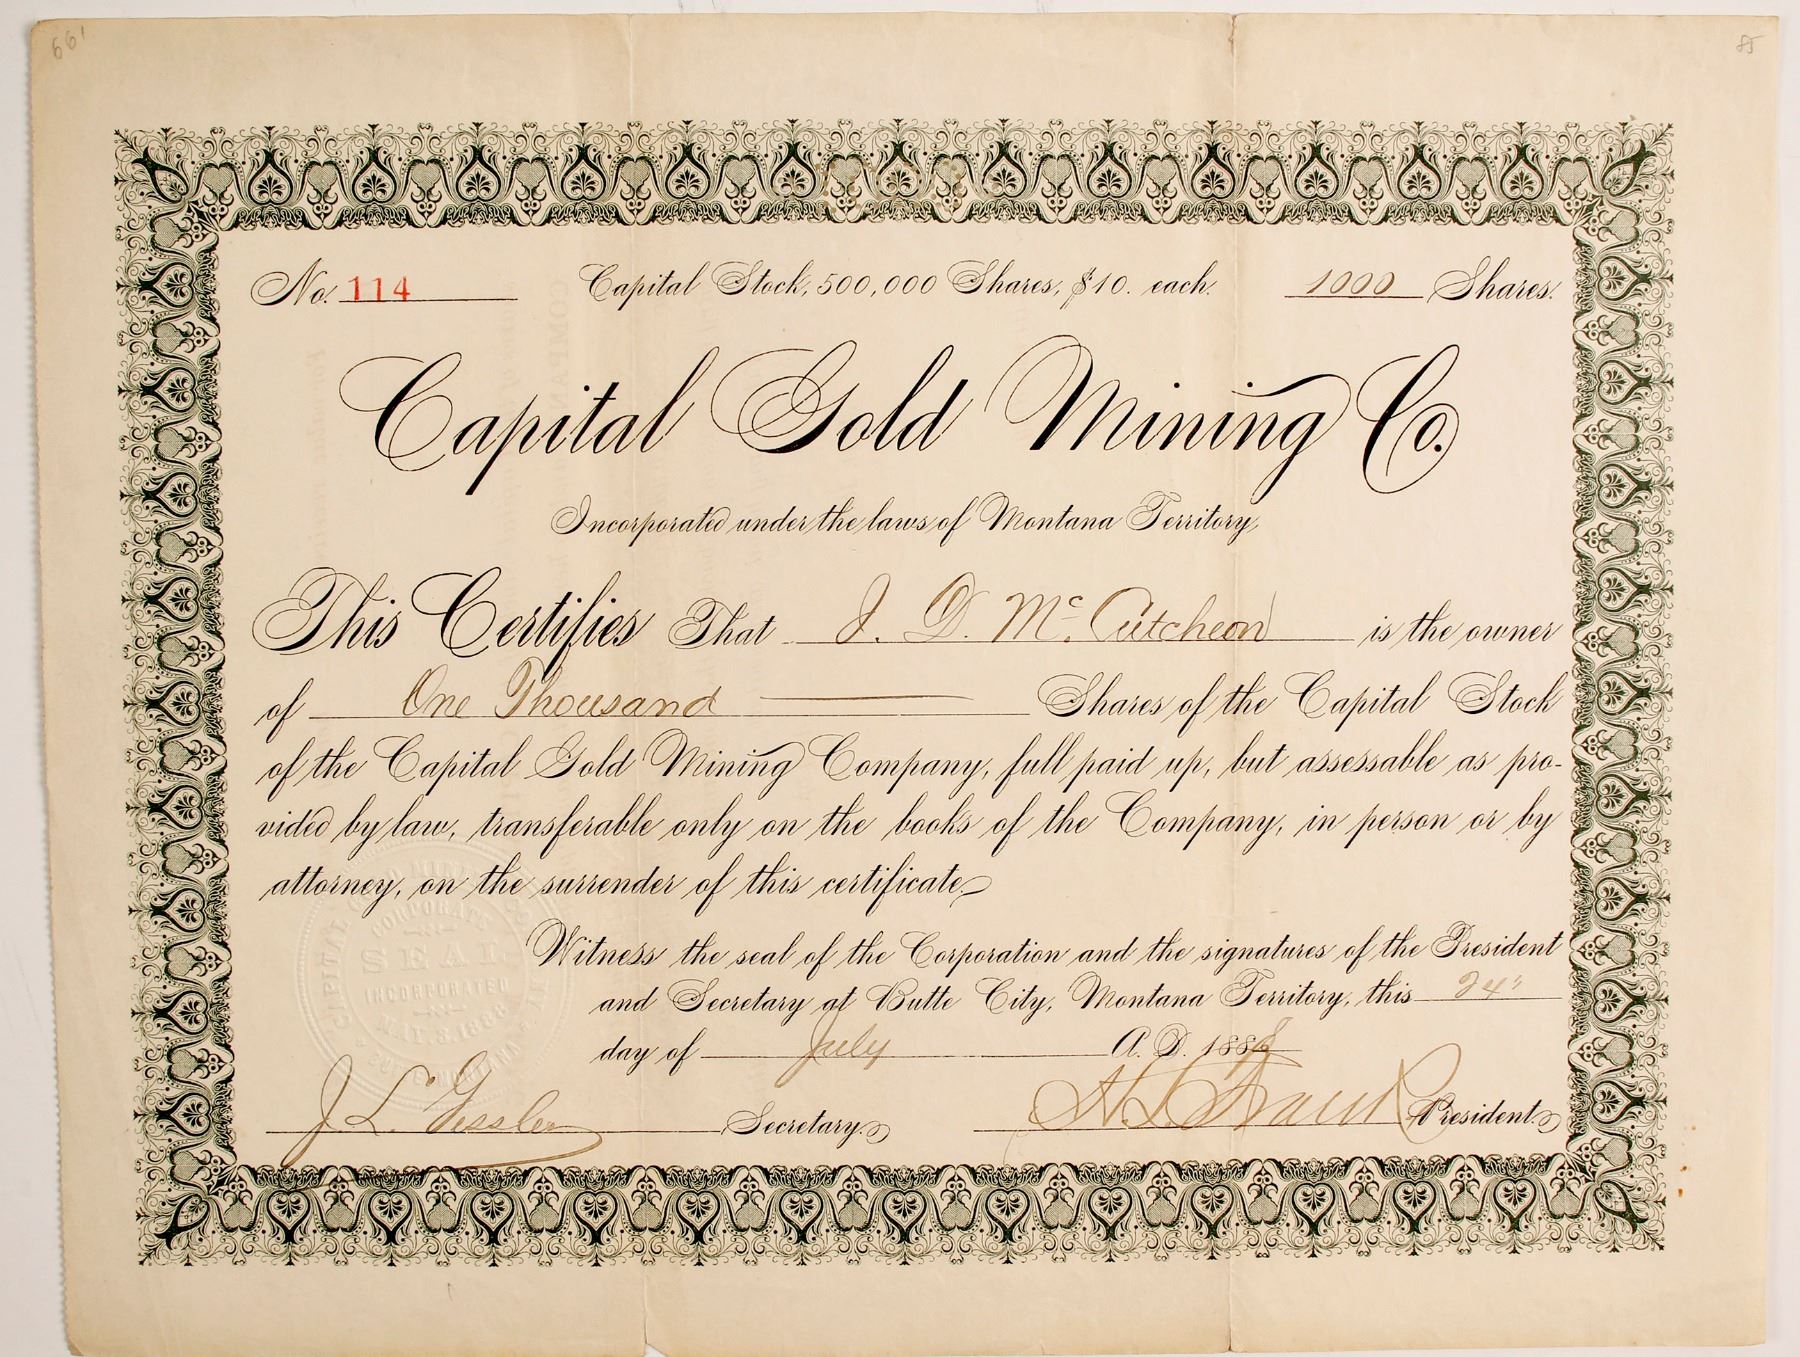 661
85
No. 114 Capital Stock, 500,000 Shares, $10. each. 1000 Shares.
Capital Gold Mining Co.
Incorporated under the laws of Montana Territory,
This Certifies That J. D. McCutcheon is the owner
of One Thousand Shares of the Capital Stock
of the Capital Gold Mining Company, full paid up, but assessable as pro-
vided by law, transferable only on the books of the Company, in person or by
attorney, on the surrender of this certificate.
Witness the seal of the Corporation and the signatures of the President
and Secretary at Butte City, Montana Territory, this 24"
day of July A. D. 188
CAPITAL
CORPORATE
SEAL
INCORPORATED
J. L. Gessler Secretary. President.